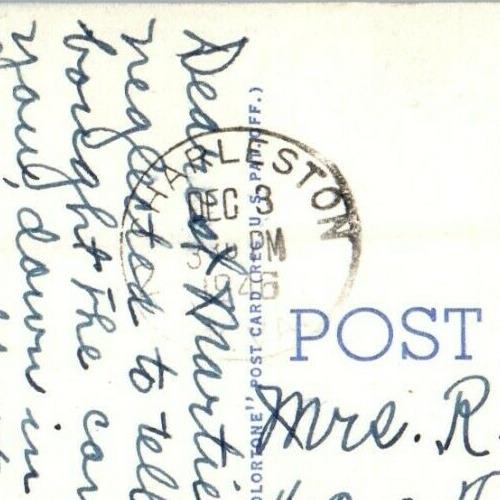 Dearest Martie
neglected to tell
bought the car
your
down in
HARLESTON
DEC 3
PM
1946
OLORTONE" POST CARD (REG. U.S. PAT. OFF.)
POST
Mrs. R.